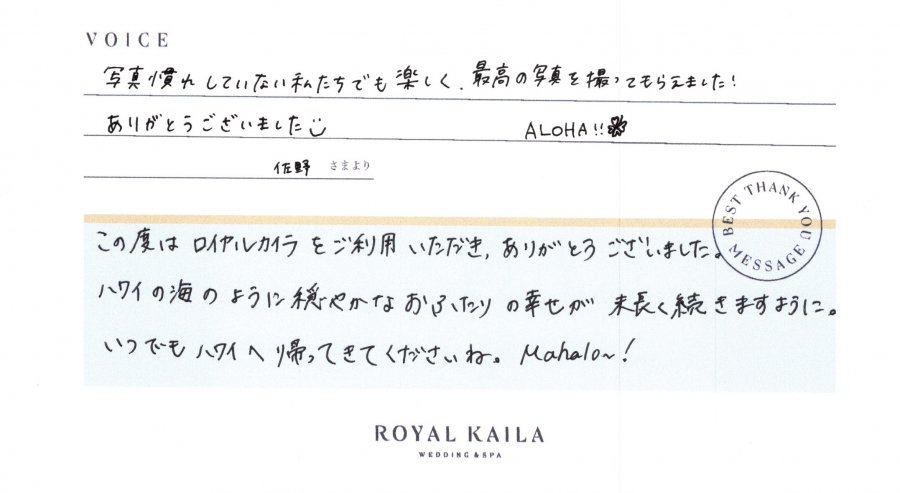 VOICE
写真慣れしていない私たちでも楽しく、最高の写真を撮ってもらえました!
ありがとうございました ALOHA!!
佐野 さまより
BEST THANK YOU MESSAGE
この度は ロイヤルカイラ をご利用 いただき、ありがとうございました。
ハワイの海のように穏やかなおふたりの幸せが 末長く続きますように。
いつでもハワイへ帰ってきてくださいね。 Mahalo~!
ROYAL KAILA
WEDDING & SPA